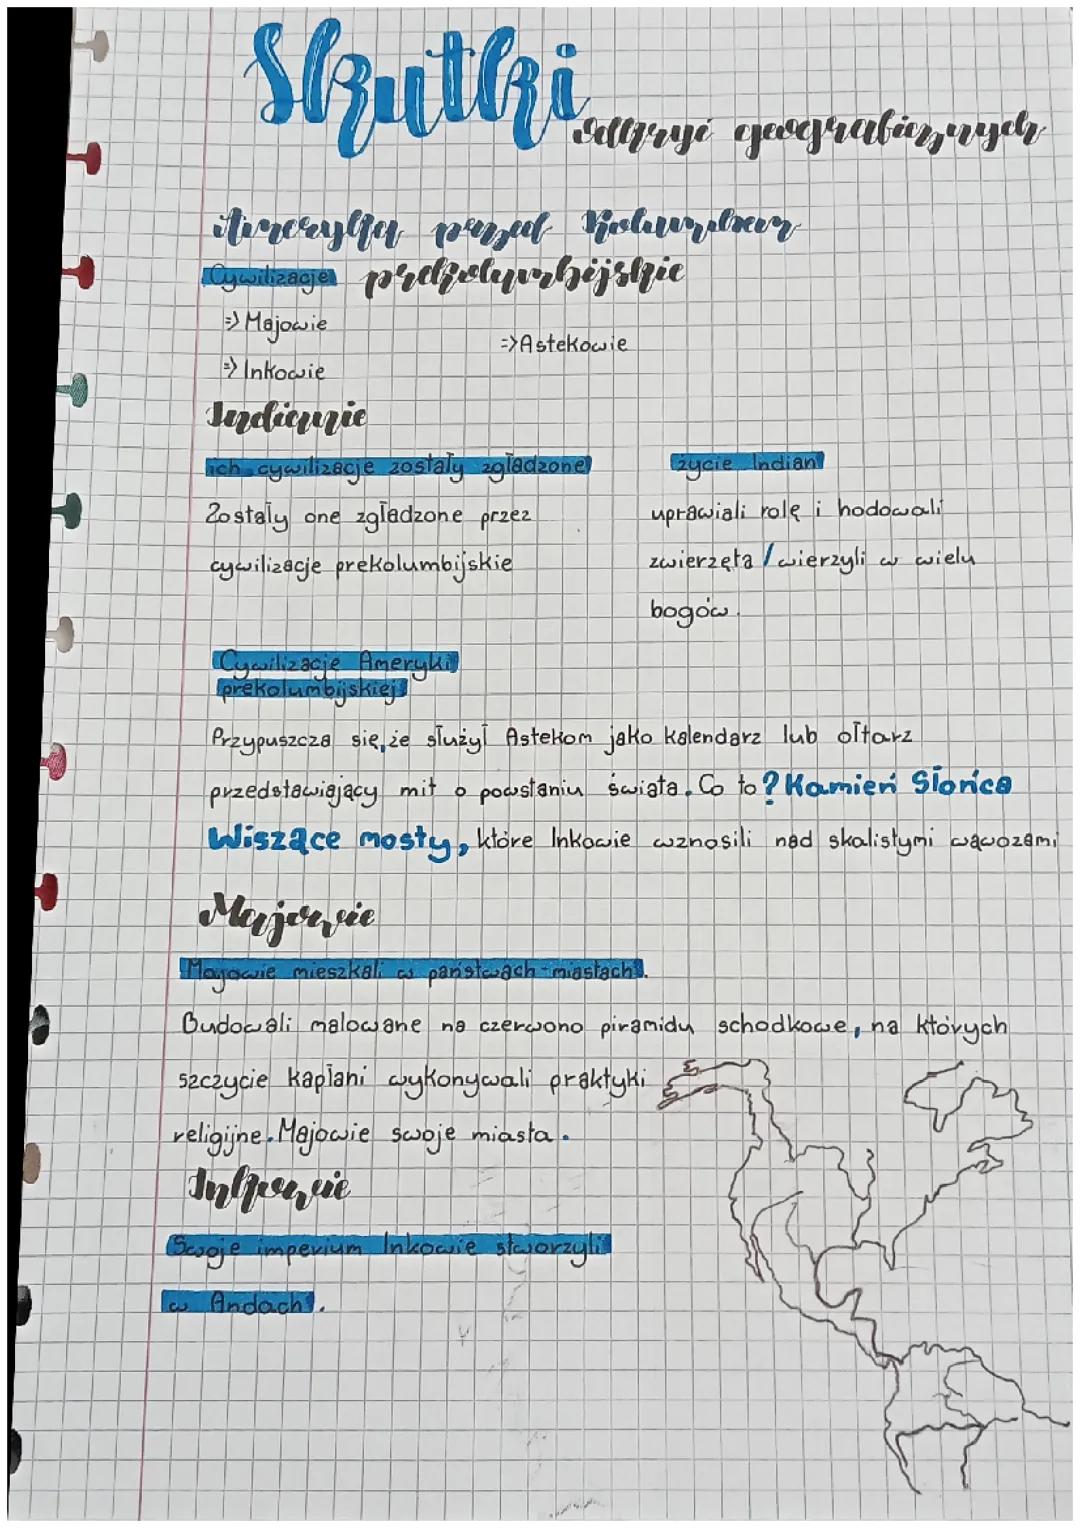 Skutki
odkryć geograficznych
Ameryka przed Kolumbem
Cywilizacje prekolumbijskie
=> Majowie
=> Astekowie
=> Inkowie
Indianie
ich cywilizacje zostały zgładzone
Zostały one zgładzone przez
cywilizacje prekolumbijskie
życie Indian
uprawiali rolę i hodowali
zwierzęta / wierzyli w wielu
bogów.
Cywilizacje Ameryki
prekolumbijskiej
Przypuszcza się, że służył Astekom jako kalendarz lub ołtarz
przedstawiający mit o powstaniu świata. Co to? Kamień Słońca
Wiszące mosty, które Inkowie wznosili nad skalistymi wąwozami
Majowie
Majowie mieszkali w państwach-miastach.
Budowali malowane na czerwono piramidy schodkowe, na których
szczycie kapłani wykonywali praktyki
religijne. Majowie swoje miasta.
Inkowie
Swoje imperium Inkowie stworzyli
w Andach.